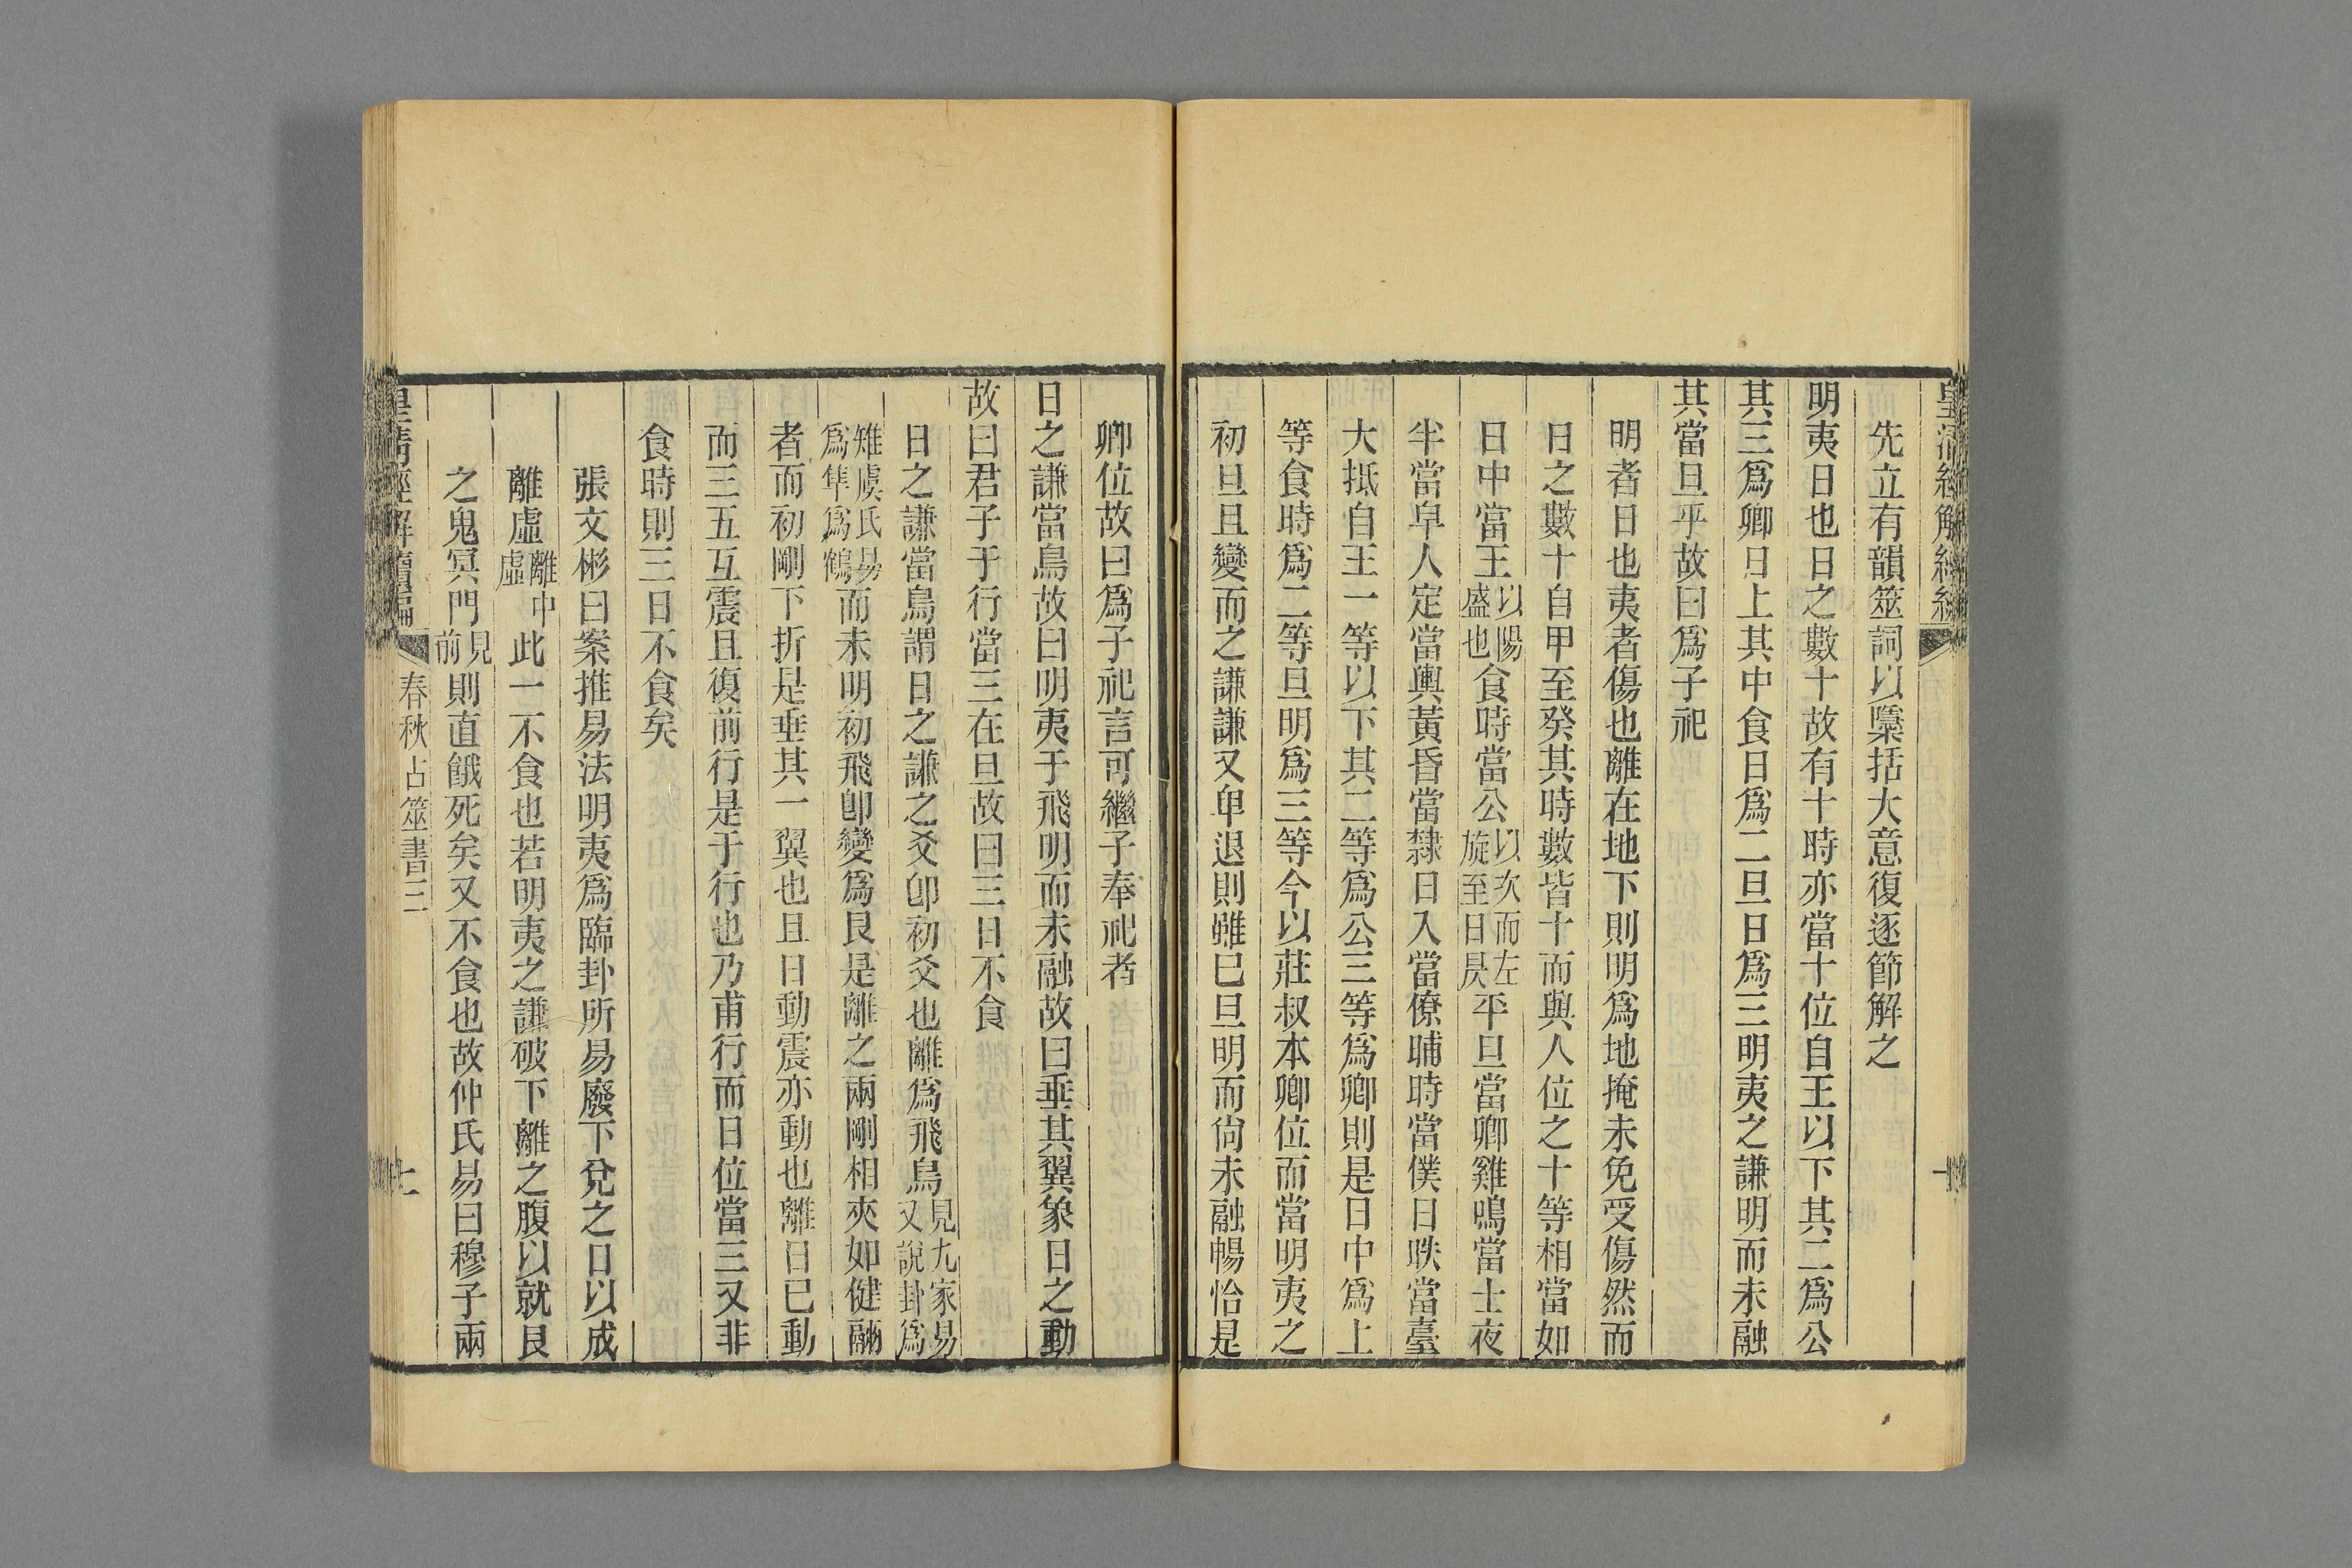 先立有韻筮詞以櫽括大意復逐節解之
明夷日也日之數十故有十時亦當十位自王以下其二爲公
其三爲卿日上其中食日爲二旦日爲三明夷之謙明而未融
其當旦乎故曰爲子祀
明者日也夷者傷也離在地下則明爲地掩未免受傷然而
日之數十自甲至癸其時數皆十而與人位之十等相當如
日中當王以陽盛也食時當公以次而左旋至日昃平旦當卿雞鳴當士夜
半當皁人定當輿黃昏當隸日入當僚晡時當僕日昳當臺
大抵自王一等以下其二等爲公三等爲卿則是日中爲上
等食時爲二等旦明爲三等今以莊叔本卿位而當明夷之
初旦且變而之謙謙又卑退則雖已旦明而尙未融暢恰是
卿位故曰爲子祀言可繼子奉祀者
日之謙當鳥故曰明夷于飛明而未融故曰垂其翼象日之動
故曰君子于行當三在旦故曰三日不食
日之謙當鳥謂日之謙之爻卽初爻也離爲飛鳥見九家易又說卦爲
雉虞氏易爲隼爲鶴而未明初飛卽變爲艮是離之兩剛相夾如健翮
者而初剛下折是垂其一翼也且日動震亦動也離日已動
而三五互震且復前行是于行也乃甫行而日位當三又非
食時則三日不食矣
張文彬曰案推易法明夷爲臨卦所易廢下兌之口以成
離虛離中虛此一不食也若明夷之謙破下離之腹以就艮
之鬼冥門見前則直餓死矣又不食也故仲氏易曰穆子兩
皇淸經解續編
春秋占筮書三